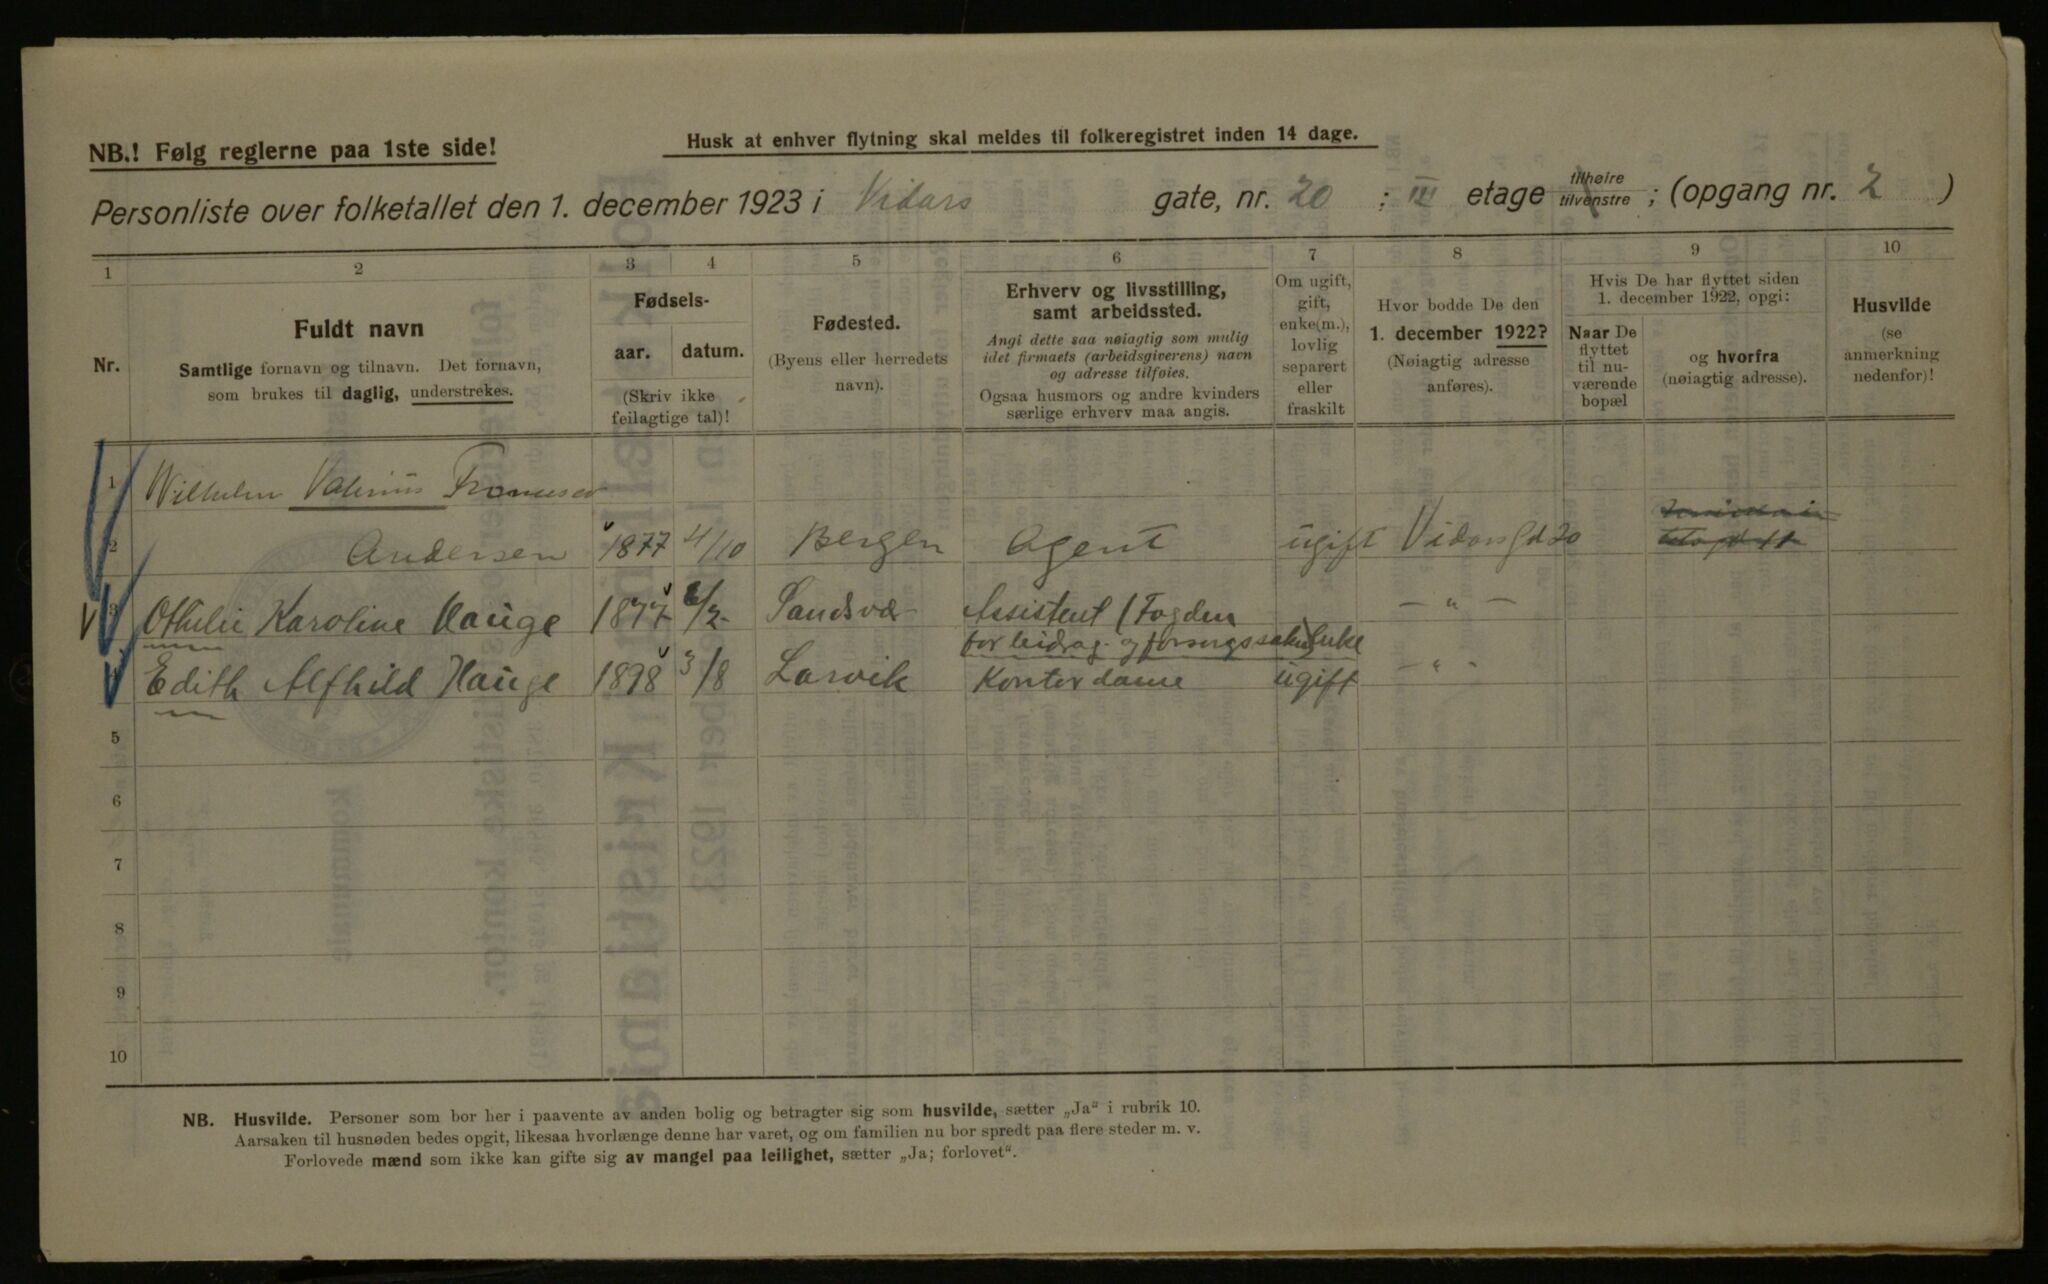 NB.! Følg reglerne paa 1ste side!
Husk at enhver flytning skal meldes til folkeregistret inden 14 dage.
Personliste over folketallet den 1. december 1923 i Vidars gate, nr. 20 ; III etage tilhøire tilvenstre ; (opgang nr. 2 )
1 2 3 4 5 6 7 8 9 10
Nr.
Fuldt navn
Samtlige fornavn og tilnavn. Det fornavn,
som brukes til daglig, understrekes.
Fødsels-
aar. datum.
(Skriv ikke
feilagtige tal)!
Fødested.
(Byens eller herredets
navn).
Erhverv og livsstilling,
samt arbeidssted.
Angi dette saa nøiagtig som mulig
idet firmaets (arbeidsgiverens) navn
og adresse tilføies.
Ogsaa husmors og andre kvinders
særlige erhverv maa angis.
Om ugift,
gift,
enke(m.),
lovlig
separert
eller
fraskilt
Hvor bodde De den
1. december 1922?
(Nøiagtig adresse
anføres).
Hvis De har flyttet siden
1. december 1922, opgi:
Naar De
flyttet
til nu-
værende
bopæl
og hvorfra
(nøiagtig adresse).
Husvilde
(se
anmerkning
nedenfor)!
1 Wilhelm
2 Andersen 1877 4/10 Bergen Agent ugift Vidarsgd 20
3 Othilie Karoline Hauge 1877 /2 Sandsvær Assistent / Fogden
for bidrag- og forsørgssaker Enke — " —
4 Edith Alfhild Hauge 1898 3/8 Larvik Kontordame ugift — " -
5
6
7
8
9
10
NB. Husvilde. Personer som bor her i paavente av anden bolig og betragter sig som husvilde, sætter „Ja“ i rubrik 10.
Aarsaken til husnøden bedes opgit, likesaa hvorlænge denne har varet, og om familien nu bor spredt paa flere steder m. v.
Forlovede mænd som ikke kan gifte sig av mangel paa leilighet, sætter „Ja; forlovet“.